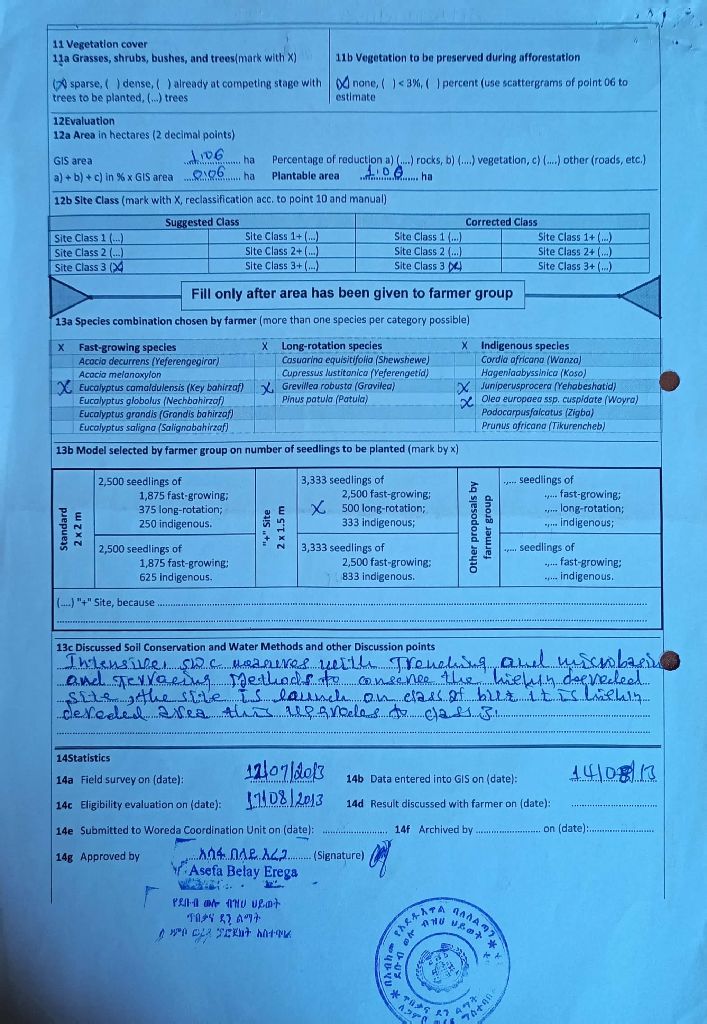 11 Vegetation cover
11a Grasses, shrubs, bushes, and trees(mark with X)
(X) sparse, ( ) dense, ( ) already at competing stage with
trees to be planted, (...) trees
11b Vegetation to be preserved during afforestation
(X) none, ( ) < 3%, ( ) percent (use scattergrams of point 06 to
estimate
12Evaluation
12a Area in hectares (2 decimal points)
GIS area 1.06 ha Percentage of reduction a) (....) rocks, b) (....) vegetation, c) (....) other (roads, etc.)
a) + b) + c) in % x GIS area 0.06 ha Plantable area 1.06 ha
12b Site Class (mark with X, reclassification acc. to point 10 and manual)
Suggested Class Corrected Class
Site Class 1 (...) Site Class 1+ (...) Site Class 1 (...) Site Class 1+ (...)
Site Class 2 (...) Site Class 2+ (...) Site Class 2 (...) Site Class 2+ (...)
Site Class 3 (X) Site Class 3+ (...) Site Class 3 (X) Site Class 3+ (...)
Fill only after area has been given to farmer group
13a Species combination chosen by farmer (more than one species per category possible)
X Fast-growing species X Long-rotation species X Indigenous species
Acacia decurrens (Yeferengegirar) Casuarina equisitifolia (Shewshewe) Cordia africana (Wanza)
Acacia melanoxylon Cupressus lustitanica (Yeferengetid) Hageniaabyssinica (Koso)
X Eucalyptus camaldulensis (Key bahirzaf) X Grevillea robusta (Gravilea) X Juniperusprocera (Yehabeshatid)
Eucalyptus globolus (Nechbahirzaf) Pinus patula (Patula) X Olea europaea ssp. cuspidate (Woyra)
Eucalyptus grandis (Grandis bahirzaf) Podocarpusfalcatus (Zigba)
Eucalyptus saligna (Salignabahirzaf) Prunus africana (Tikurencheb)
13b Model selected by farmer group on number of seedlings to be planted (mark by x)
Standard
2 x 2 m
2,500 seedlings of
1,875 fast-growing;
375 long-rotation;
250 indigenous.
2,500 seedlings of
1,875 fast-growing;
625 indigenous.
"+" Site
2 x 1.5 m
3,333 seedlings of
2,500 fast-growing;
X 500 long-rotation;
333 indigenous;
3,333 seedlings of
2,500 fast-growing;
833 indigenous.
Other proposals by
farmer group
.,... seedlings of
.,... fast-growing;
.,... long-rotation;
.,... indigenous;
.,... seedlings of
.,... fast-growing;
.,... indigenous.
(....) "+" Site, because
13c Discussed Soil Conservation and Water Methods and other Discussion points
Intensive, swc measures with Trenching and microbasin
and Terracing Methods to conserve the highly
site, the site is launch on class but it is highly
area this to class 3.
14Statistics
14a Field survey on (date): 12/07/2013 14b Data entered into GIS on (date): 14/08/13
14c Eligibility evaluation on (date): 17/08/2013 14d Result discussed with farmer on (date):
14e Submitted to Woreda Coordination Unit on (date): 14f Archived by on (date):
14g Approved by አሰፋ በላይ እረጋ (Signature)
Asefa Belay Erega
የደቡብ ወሎ ብዝሀ ህይወት
ጥበቃና ደን ልማት